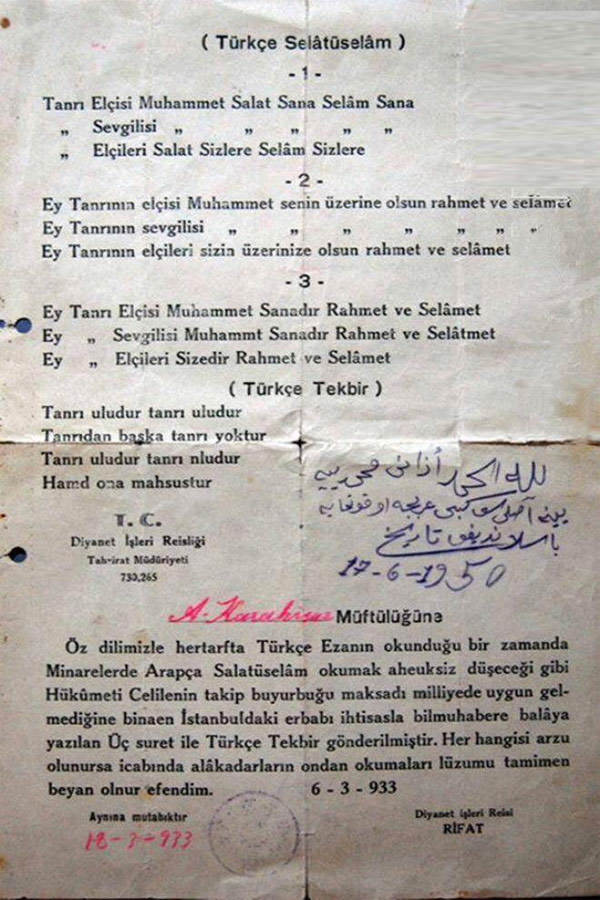 ( Türkçe Selâtüselâm )
- 1 -
Tanrı Elçisi Muhammet Salat Sana Selâm Sana
„ Sevgilisi „ „ „ „ „
„ Elçileri Salat Sizlere Selâm Sizlere
- 2 -
Ey Tanrının elçisi Muhammet senin üzerine olsun rahmet ve selâmet
Ey Tanrının sevgilisi „ „ „ „ „ „ „
Ey Tanrının elçileri sizin üzerinize olsun rahmet ve selâmet
- 3 -
Ey Tanrı Elçisi Muhammet Sanadır Rahmet ve Selâmet
Ey „ Sevgilisi Muhammt Sanadır Rahmet ve Selâtmet
Ey „ Elçileri Sizedir Rahmet ve Selâmet
( Türkçe Tekbir )
Tanrı uludur tanrı uludur
Tanrıdan başka tanrı yoktur
Tanrı uludur tanrı nludur
Hamd ona mahsustur
لله الحمد أذانى
يينه اصلى كبى عربجه اوقونمايه
باسلاندیغی تاریخ
17-6-1950
T. C.
Diyanet İşleri Reisliği
Tahrirat Müdüriyeti
730,265
A-Karahisar Müftülüğüne
Öz dilimizle hertarfta Türkçe Ezanın okunduğu bir zamanda
Minarelerde Arapça Salatüselâm okumak aheuksiz düşeceği gibi
Hükûmeti Celilenin takip buyurbuğu maksadı milliyede uygun gel-
mediğine binaen İstanbuldaki erbabı ihtisasla bilmuhabere balâya
yazılan Üç suret ile Türkçe Tekbir gönderilmiştir. Her hangisi arzu
olunursa icabında alâkadarların ondan okumaları lüzumu tamimen
beyan olnur efendim. 6 - 3 - 933
Aynına mutabıktır
18-3-933
Diyanet işleri Reisi
RİFAT